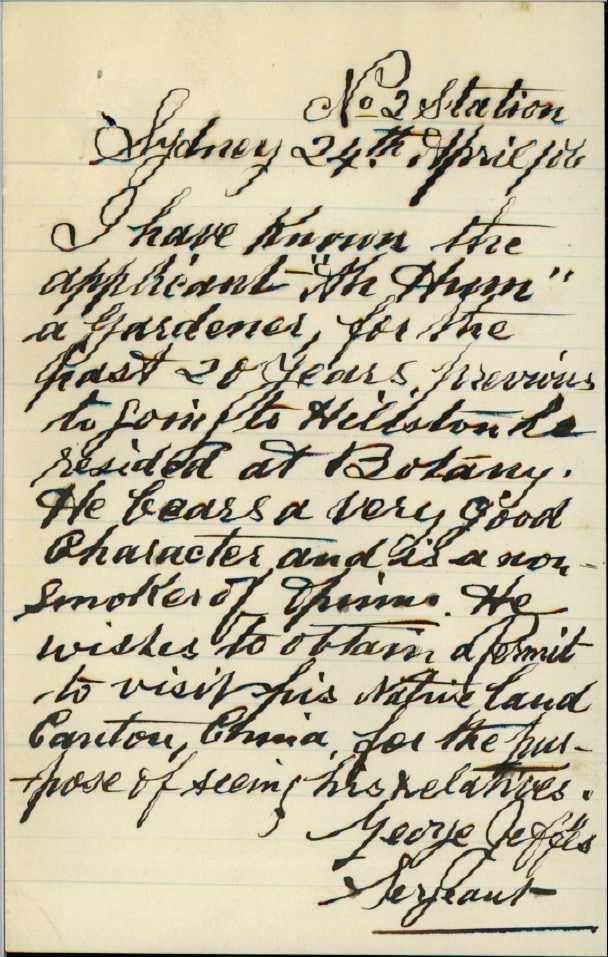 No 2 Station
Sydney 24th April /06
I have known the
applicant "Ah Hum"
a Gardener, for the
past 20 Years, previous
to going to Hillston he
resided at Botany.
He bears a very good
Character and is a non-
smoker of Opium. He
wishes to obtain a permit
to visit his native land
Canton, China, for the pur-
pose of seeing his relatives.
George Jeffes
Serjeant